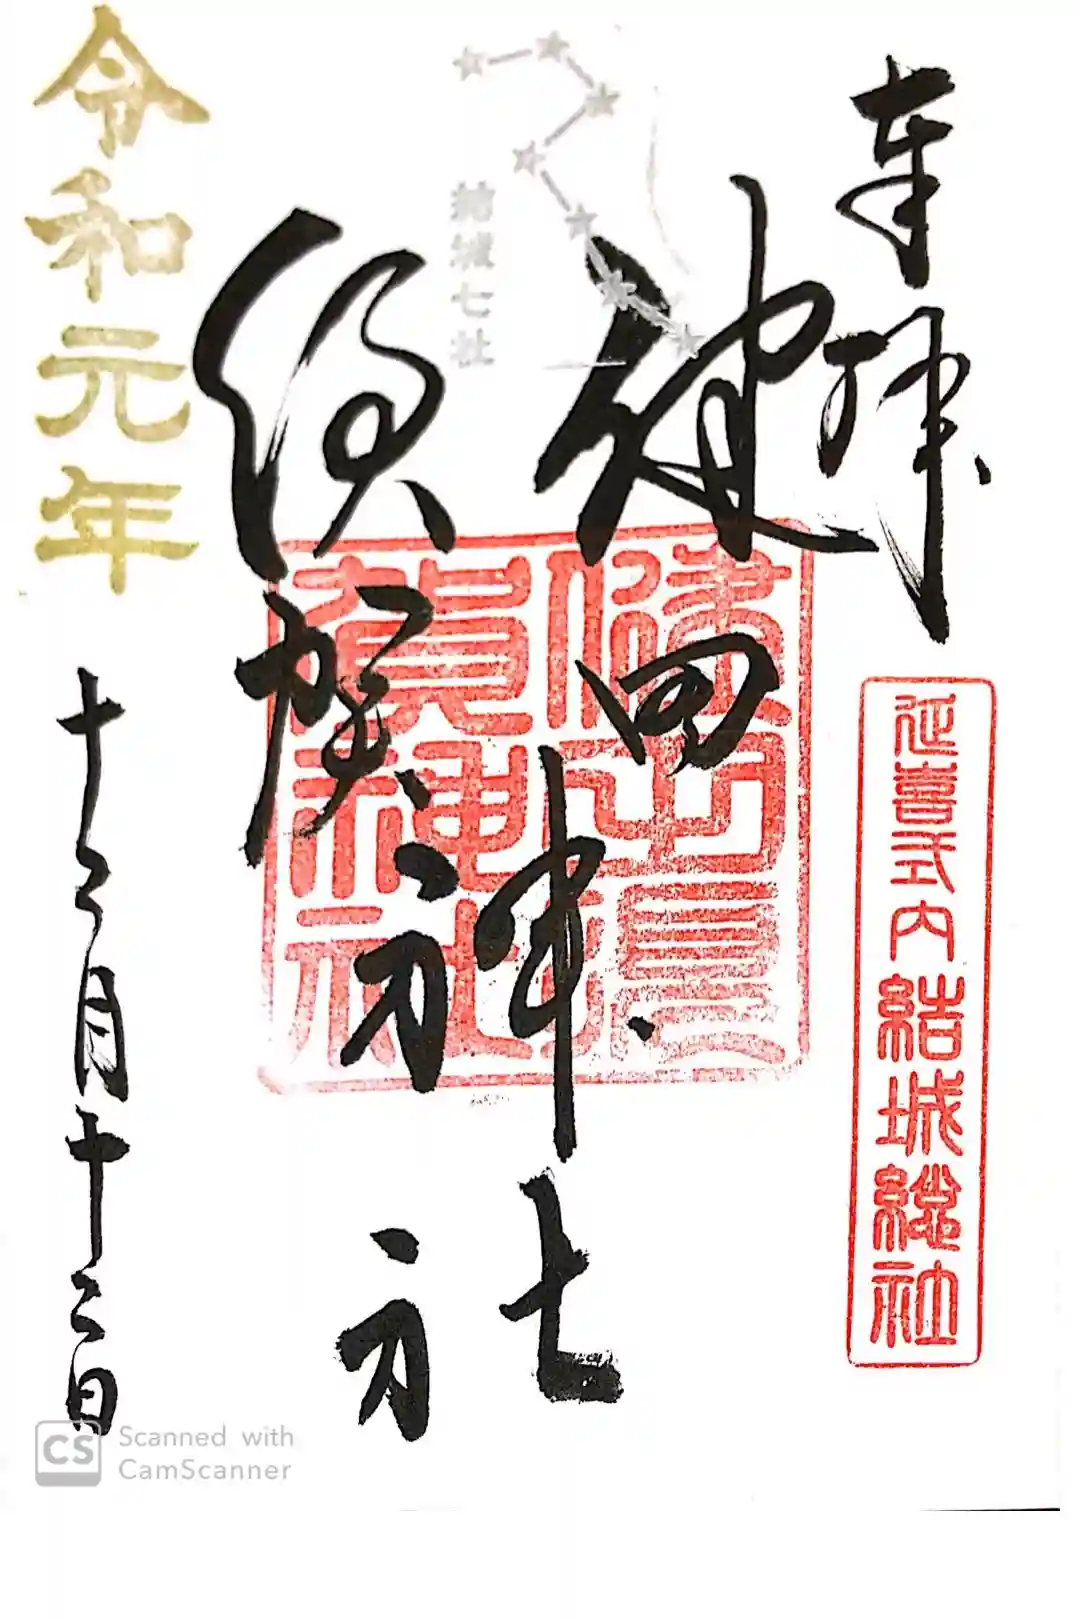 奉拝
延喜式内結城総社
健田
須賀
神社
健田須賀神社
結城七社
令和元年
十二月十二日
CS Scanned with
CamScanner